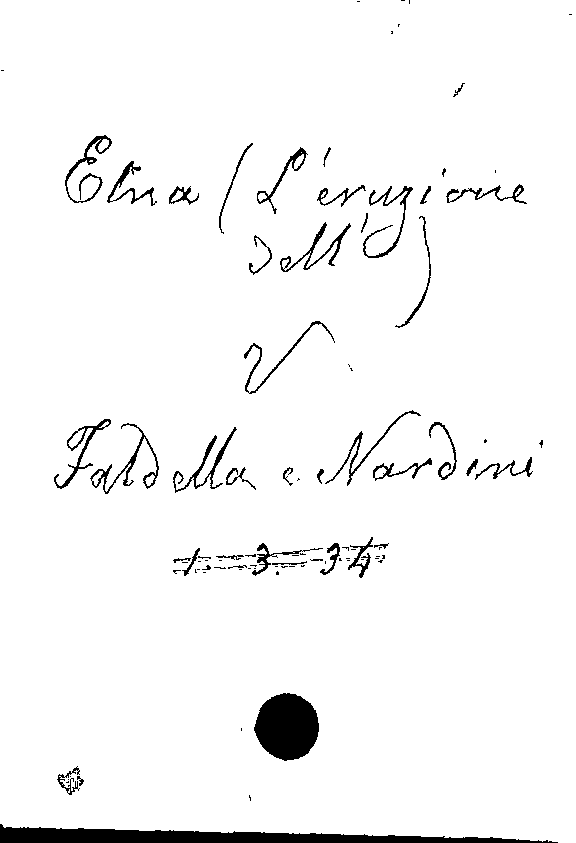 Etna (L'eruzione
dell')
V
Faldella e Nardini
1. 3. 34